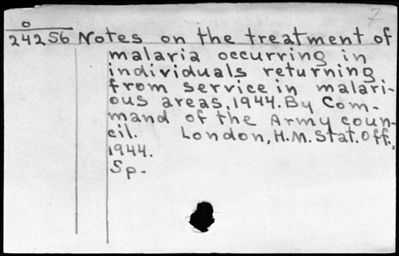 7
o
24256 Notes on the treatment of
malaria occurring in
individuals returning
from service in malari-
ous areas, 1944. By Com-
mand of the Army coun-
cil. London, H.M. Stat. Off.,
1944.
Sp.